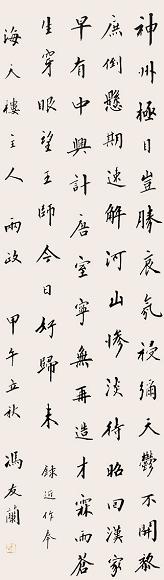 神州極目豈勝哀氛祲彌天鬱不開黎
庶倒懸期速解河山慘淡待昭回漢家
早有中興計唐室寧無再造才霖雨蒼
生穿眼望王師今日好歸来 錄近作奉
海天樓主人兩政 甲午立秋 馮友蘭